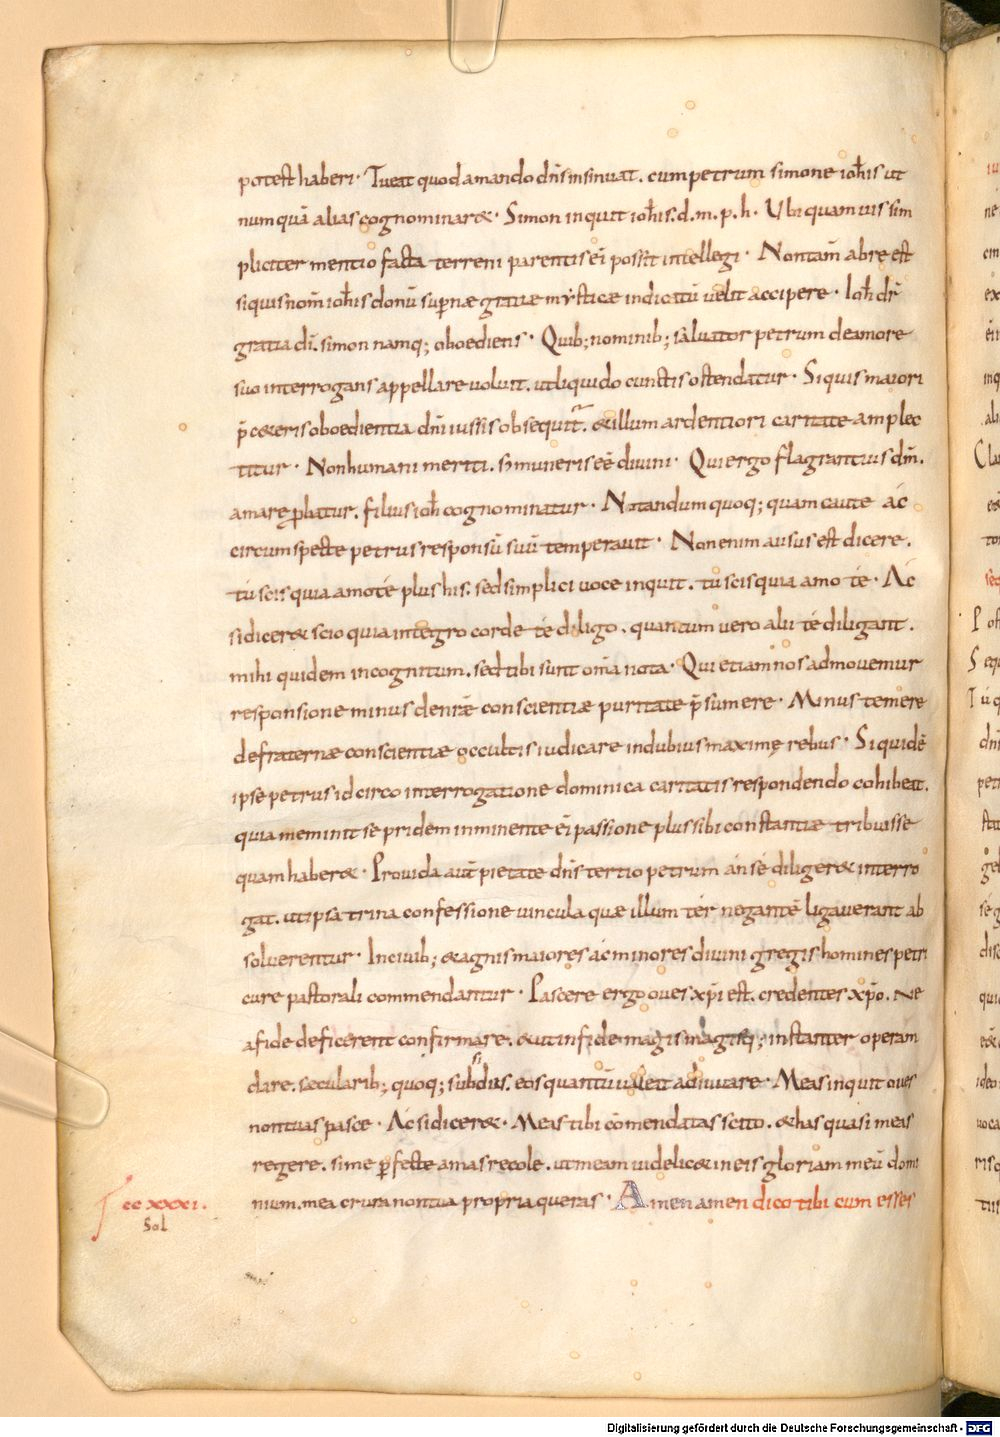 potest haberi· Tueat quod amando dn̄s insinuat. cum petrum simone ioh̄is ut
numquā alias cognominaret· Simon inquit ioh̄is. d. m. p. h. Ubi quamuis sim
pliciter mentio facta terreni parentis eī possit intellegi· Non tam̄ ab re est
siquis nom̄ ioh̄is donū sup̄nae gratiae mysticae indicatū velit accipere· Ioh̄ dr̄
gratia dī. simon namq; oboediens· Quib; nominib; saluator petrum de amore
suo interrogans appellare voluit. ut liquido cunctis ostendatur· Siquis maiori
p̄ ceteris oboedientia dn̄i iussis obsequit̄. & illum ardentiori caritate amplec
titur· Non humani meriti. s; muneris eē divini· Qui ergo flagrantius dn̄m.
amare p̱batur. filius ioh̄ cognominatur· Notandum quoq; quam caute ac
circumspecte petrus responsū suū temperauit· Non enim ausus est dicere.
tu scis quia amo te plus his. sed simplici uoce inquit. tu scis quia amo te· Ac
si diceret scio quia integro corde te diligo. quantum uero alii te diligant.
mihi quidem incognitum. sed tibi sunt om̄a nota· Qui etiam nos admouemur
responsione minus de nr̄ae conscientiae puritate p̄sumere· Minus temere
de fraternae conscientiae occultis iudicare in dubiis maximę rebus· Siquidē
ipse petrus idcirco interrogatione dominica caritatis respondendo cohibeat.
quia meminit se pridem inminente eī passione plus sibi constantiae tribuisse
quam haberet· Provida aut̄ pietate dn̄s tertio petrum an se diligeret interro
gat. ut ipsa trina confessione uincula quae illum ter negantē ligauerant ab
soluerentur· In ouib; & agnis maiores ac minores diuini gregis homines petri
cure pastorali commendantur· Pascere ergo oues xp̄i est. credentes xp̄o. ne
a fide deficerent confirmare. & ut in fide magis magisq; instanter operam
dare. secularib; quoq; subdiis. eos quantū valeat adiuuare· Meas inquit oues
non tuas pasce· Ac si diceret· Meas tibi cōmendatas scito. & has quasi meas
regere. si me p̱fecte amas recole. ut meam uidelicet in eis gloriam meū domi
nium. mea crura non tua propria queras· Amen amen dico tibi cum esses
ccxxxi.
Sol
Digitalisierung gefördert durch die Deutsche Forschungsgemeinschaft - DFG